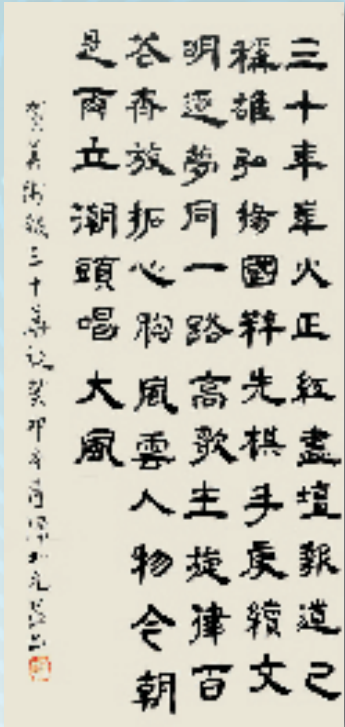 三十年華火正紅畫壇報道已
稱雄弘揚國粹先棋手賡續文
明逐夢同一路高歌主旋律百
花齊放拓心胸風雲人物今朝
是而立潮頭唱大風
賀美術報三十華誕癸卯年